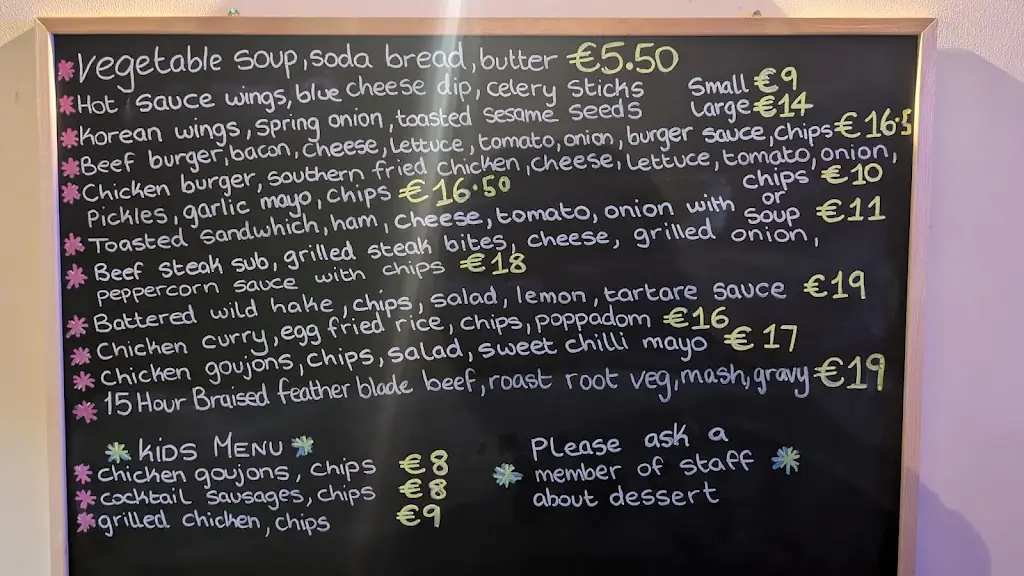 Vegetable soup, soda bread, butter €5.50
Hot sauce wings, blue cheese dip, celery sticks Small €9
Korean wings, spring onion, toasted sesame seeds Large €14
Beef burger, bacon, cheese, lettuce, tomato, onion, burger sauce, chips €16.5
Chicken burger, southern fried chicken, cheese, lettuce, tomato, onion,
Pickles, garlic mayo, chips €16.50
Toasted sandwhich, ham, cheese, tomato, onion with chips €10
or
soup €11
Beef steak sub, grilled steak bites, cheese, grilled onion,
peppercorn sauce with chips €18
Battered wild hake, chips, salad, lemon, tartare sauce €19
Chicken curry, egg fried rice, chips, poppadom €16
Chicken goujons, chips, salad, sweet chilli mayo €17
15 Hour Braised feather blade beef, roast root veg, mash, gravy €19
KIDS MENU
chicken goujons, chips €8
cocktail sausages, chips €8
grilled chicken, chips €9
Please ask a
member of staff
about dessert